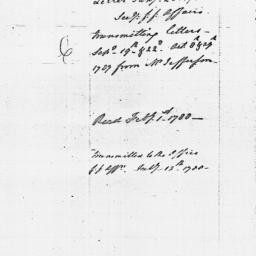 Secy. f. Affairs
transmitting letters—
Sepr. 19th & 22d. Octr. 8th &
1787 from Mr. Jefferson
Read Feby. 1st. 1788—
transmitted to the Office
f. Affrs. Feby. 13th. 1788—